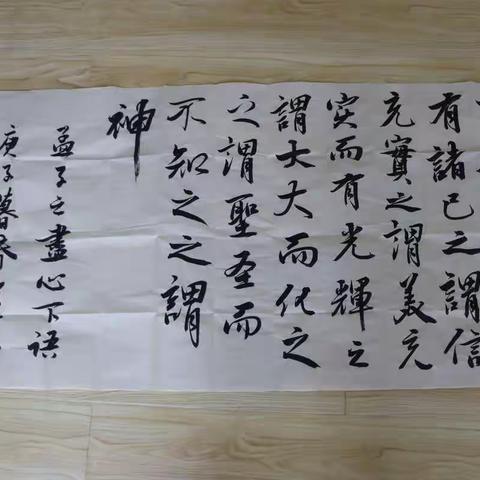 有諸己之謂信
充實之謂美充
实而有光輝之
謂大大而化之
之謂聖圣而
不知之之謂
神
孟子之盡心下语
庚子暮春